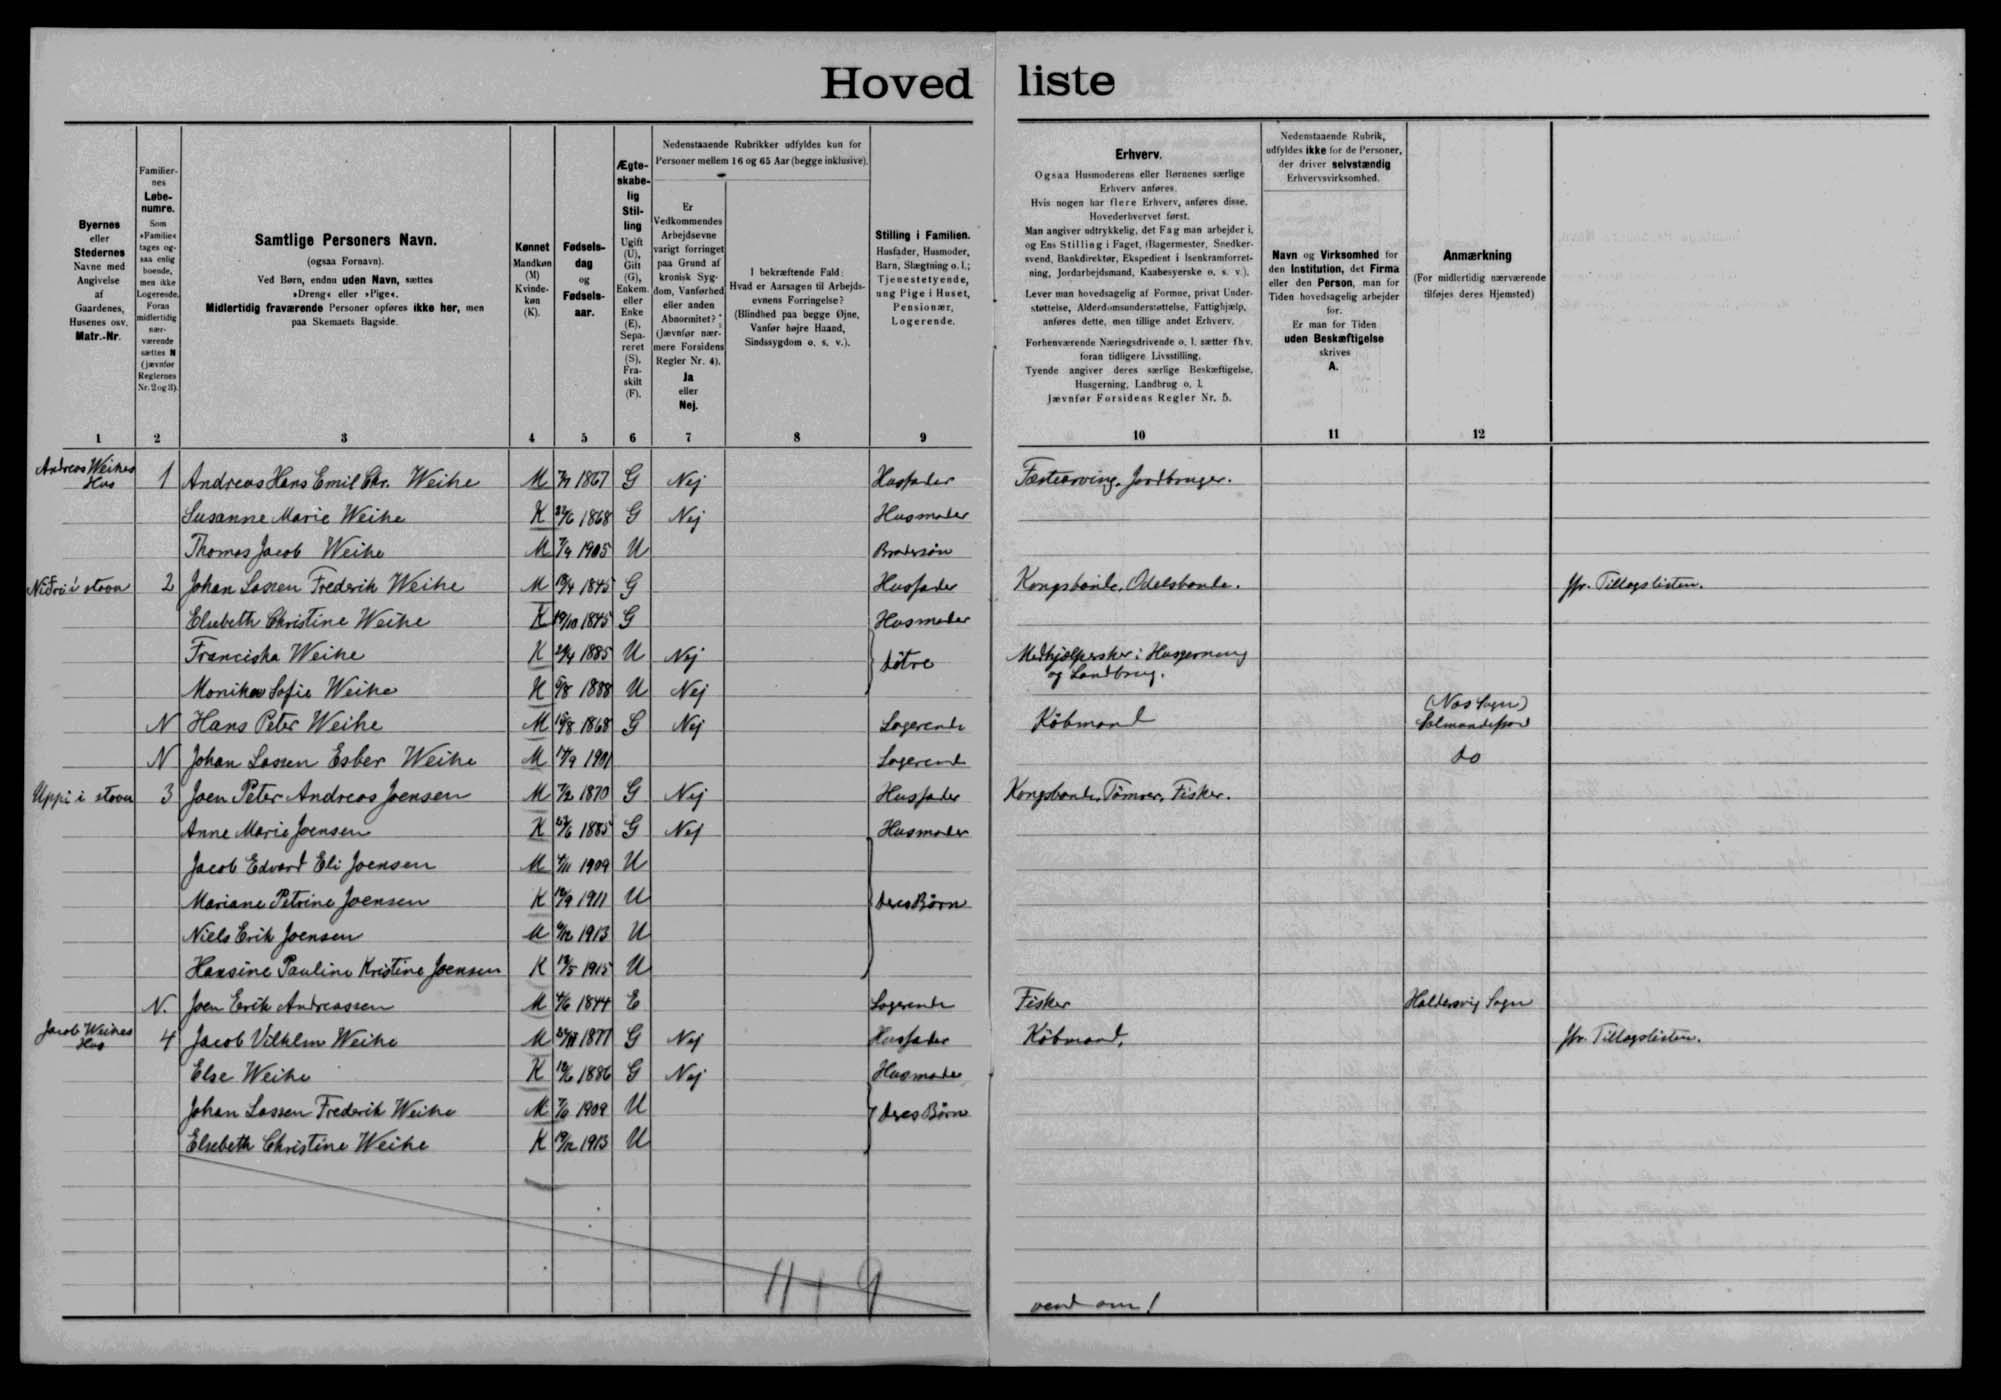 Hoved liste
Byernes
eller
Stedernes
Navne med
Angivelse
af
Gaardenes,
Husenes osv.
Matr.-Nr.
Familier-
nes
Løbe-
numre.
Som
»Familie«
tages og-
saa enlig
boende,
men ikke
Logerende.
Foran
midlertidig
nær-
værende
sættes N
(jævnfør
Reglernes
Nr. 2 og 3).
Samtlige Personers Navn.
(ogsaa Fornavn).
Ved Børn, endnu uden Navn, sættes
»Dreng« eller »Pige«.
Midlertidig fraværende Personer opføres ikke her, men
paa Skemaets Bagside.
Kønnet
Mandkøn
(M)
Kvinde-
køn
(K).
Fødsels-
dag
og
Fødsels-
aar.
Ægte-
skabe-
lig
Stil-
ling
Ugift
(U),
Gift
(G),
Enkem.
eller
Enke
(E),
Sepa-
reret
(S),
Fra-
skilt
(F).
Nedenstaaende Rubrikker udfyldes kun for
Personer mellem 16 og 65 Aar (begge inklusive).
Er
Vedkommendes
Arbejdsevne
varigt forringet
paa Grund af
kronisk Syg-
dom, Vanførhed
eller anden
Abnormitet?
(Jævnfør nær-
mere Forsidens
Regler Nr. 4).
Ja
eller
Nej.
I bekræftende Fald:
Hvad er Aarsagen til Arbejds-
evnens Forringelse?
(Blindhed paa begge Øjne,
Vanfør højre Haand,
Sindssygdom o. s. v.).
Stilling i Familien.
Husfader, Husmoder,
Barn, Slægtning o. l.;
Tjenestetyende,
ung Pige i Huset,
Pensionær,
Logerende.
Erhverv.
Ogsaa Husmoderens eller Børnenes særlige
Erhverv anføres.
Hvis nogen har flere Erhverv, anføres disse,
Hovederhvervet først.
Man angiver udtrykkelig, det Fag man arbejder i,
og Ens Stilling i Faget, (Bagermester, Snedker-
svend, Bankdirektør, Ekspedient i Isenkramforret-
ning, Jordarbejdsmand, Kaabesyerske o. s. v.).
Lever man hovedsagelig af Formue, privat Under-
støttelse, Alderdomsunderstøttelse, Fattighjælp,
anføres dette, men tillige andet Erhverv.
Forhenværende Næringsdrivende o. l. sætter fhv.
foran tidligere Livsstilling.
Tyende angiver deres særlige Beskæftigelse,
Husgerning, Landbrug o. l.
Jævnfør Forsidens Regler Nr. 5.
Nedenstaaende Rubrik,
udfyldes ikke for de Personer,
der driver selvstændig
Erhvervsvirksomhed.
Navn og Virksomhed for
den Institution, det Firma
eller den Person, man for
Tiden hovedsagelig arbejder
for.
Er man for Tiden
uden Beskæftigelse
skrives
A.
Anmærkning
(For midlertidig nærværende
tilføjes deres Hjemsted)
1 2 3 4 5 6 7 8 9 10 11 12
Andreas Weihes
Hus 1 Andreas Hans Emil Chr. Weihe M 1867 G Nej Husfader Fæstearving, Jordbruger.
Susanne Marie Weihe K 1868 G Nej Husmoder
Thomas Jacob Weihe M 1905 U Brodersøn
Niðri i stovu 2 Johan Lassen Frederik Weihe M 1845 G Husfader Kongsbonde, Odelsbonde. Jfr. Tillægslisten.
Elsebeth Christine Weihe K 19/10 1845 G Husmoder
Franciska Weihe K 1885 U Nej Døtre Medhjælpersker i Husgerning
og Landbrug.
Monika Sofie Weihe K 1888 U Nej
N Hans Peter Weihe M 1868 G Nej Logerende Købmand (Næs Sogn)
N Johan Lassen Esber Weihe M 1901 Logerende do
Uppi i stovu 3 Joen Peter Andreas Joensen M 1870 G Nej Husfader Kongsbonde, Tømrer, Fisker.
Anne Marie Joensen K 1885 G Nej Husmoder
Jacob Edvard Eli Joensen M 1909 U
Mariane Petrine Joensen K 1911 U deres Børn
Niels Erik Joensen M 1913 U
Hansine Pauline Kristine Joensen K 1915 U
N. Joen Erik Andreassen M 1844 E Logerende Fisker Haldersvig Sogn
Jacob Weihes
Hus 4 Jacob Vilhelm Weihe M 1877 G Nej Husfader Købmand. Jfr. Tillægslisten.
Else Weihe K 1886 G Nej Husmoder
Johan Lassen Frederik Weihe M 1909 U deres Børn
Elsebeth Christine Weihe K 1913 U
11 + 9
vend om!